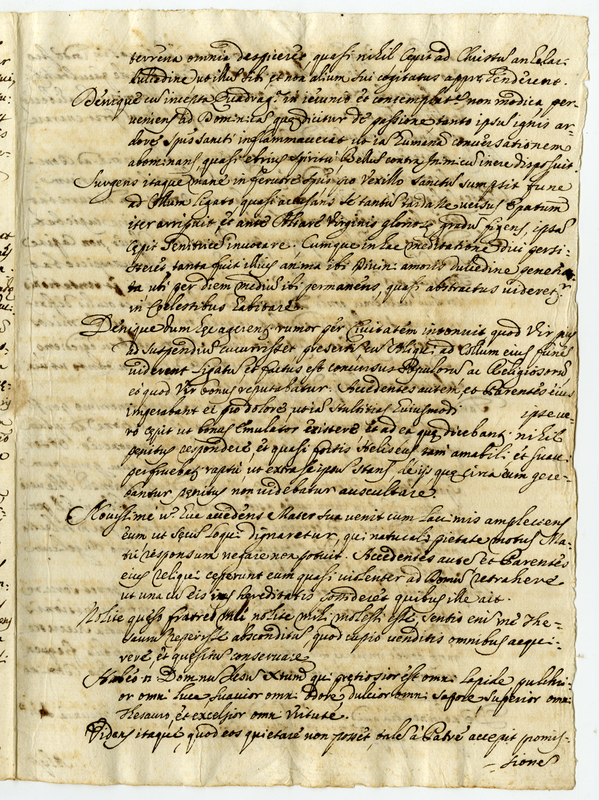 terrena omnia despiceret quasi nihil cepit ad Christus anhelare
tudine ut illus sibi et non alium sui cogitatus apprehenderent.
Denique cu incepta Quadrag.ª in ieiunio et contemplat.ᵉ non modica per-
venien ad Domin:cã quę dicitur de passione tanto ipsius ignis ar-
dore Spus sancti inflammaverat ut iã humana conversationem
abominans quasi ebrius spiritu Bellus contra Inimicu inire disposuit.
Surgens itaque mane in fervore spus pro Vexillo sanctus sumpsit fune
ad Collum ligato quasi accusans se tantus nudasse versus
iter arripuit et ante Altare Virginis gloriosę gradus figens, ipsã
cepit Genitrice invocare. Cumque in hac meditatione diu persti-
teret tanta fuit illius anima ibi Divini amoris dulcedine
ta uti per diem mediu ibi permanens, quasi abstractus videret.ʳ
in Cœlestibus habitare.
Denique dum hęc agerent rumor per Civitatem intonuit quod Vir pus
ad suspendiu cucurrisset presertim cu ad Collum eius fune
viderent ligatu et factus est concursus Populorus ac Religiosorũ
eo quod Vir bonus reputabatur. Accedentes autem, et Parentes eius
imperabant ei prę dolore ut iã stultitias huiusmodi ipse ve-
rò cepit ut bonus Emulator existere et ad ea quę dicebant nihil
penitus respondere et quasi fortis Heliseus tam amabili et suavi
perfruebat raptu, ut extra se ipsu stans de iis, quę circa eum gere-
bantur penitus non videbatur auscultare
Novissime vº hæc accedens Mater sua venit cum lacrimis amplectens
eum ut secus loqui dignaretur, qui naturali pietate motus Ma-
tri responsum negare non potuit. Accedentes autẽ et Parentes
eius reliqui ceperunt eum quasi violenter ad Domũ retrahere
ut una cu eis hereditatis quibus ille ait.
Nolite quęso fratres mei nolite mihi molesti esse, sentio eni me The-
saurus reperisse absconditus quod cupio venditis omnibus acqui-
rere et quesitus conservare
Habeo n. Dominus Jesus Xtum qui pretiosior est omni lapide pulchri-
or omni luce, suavior omni odore dulcior omni sapore, superior omni
thesauro et excelsior omni virtute.
Videns itaque, quod eos quietare non posset, vale à Patre accepit promis-
-sione